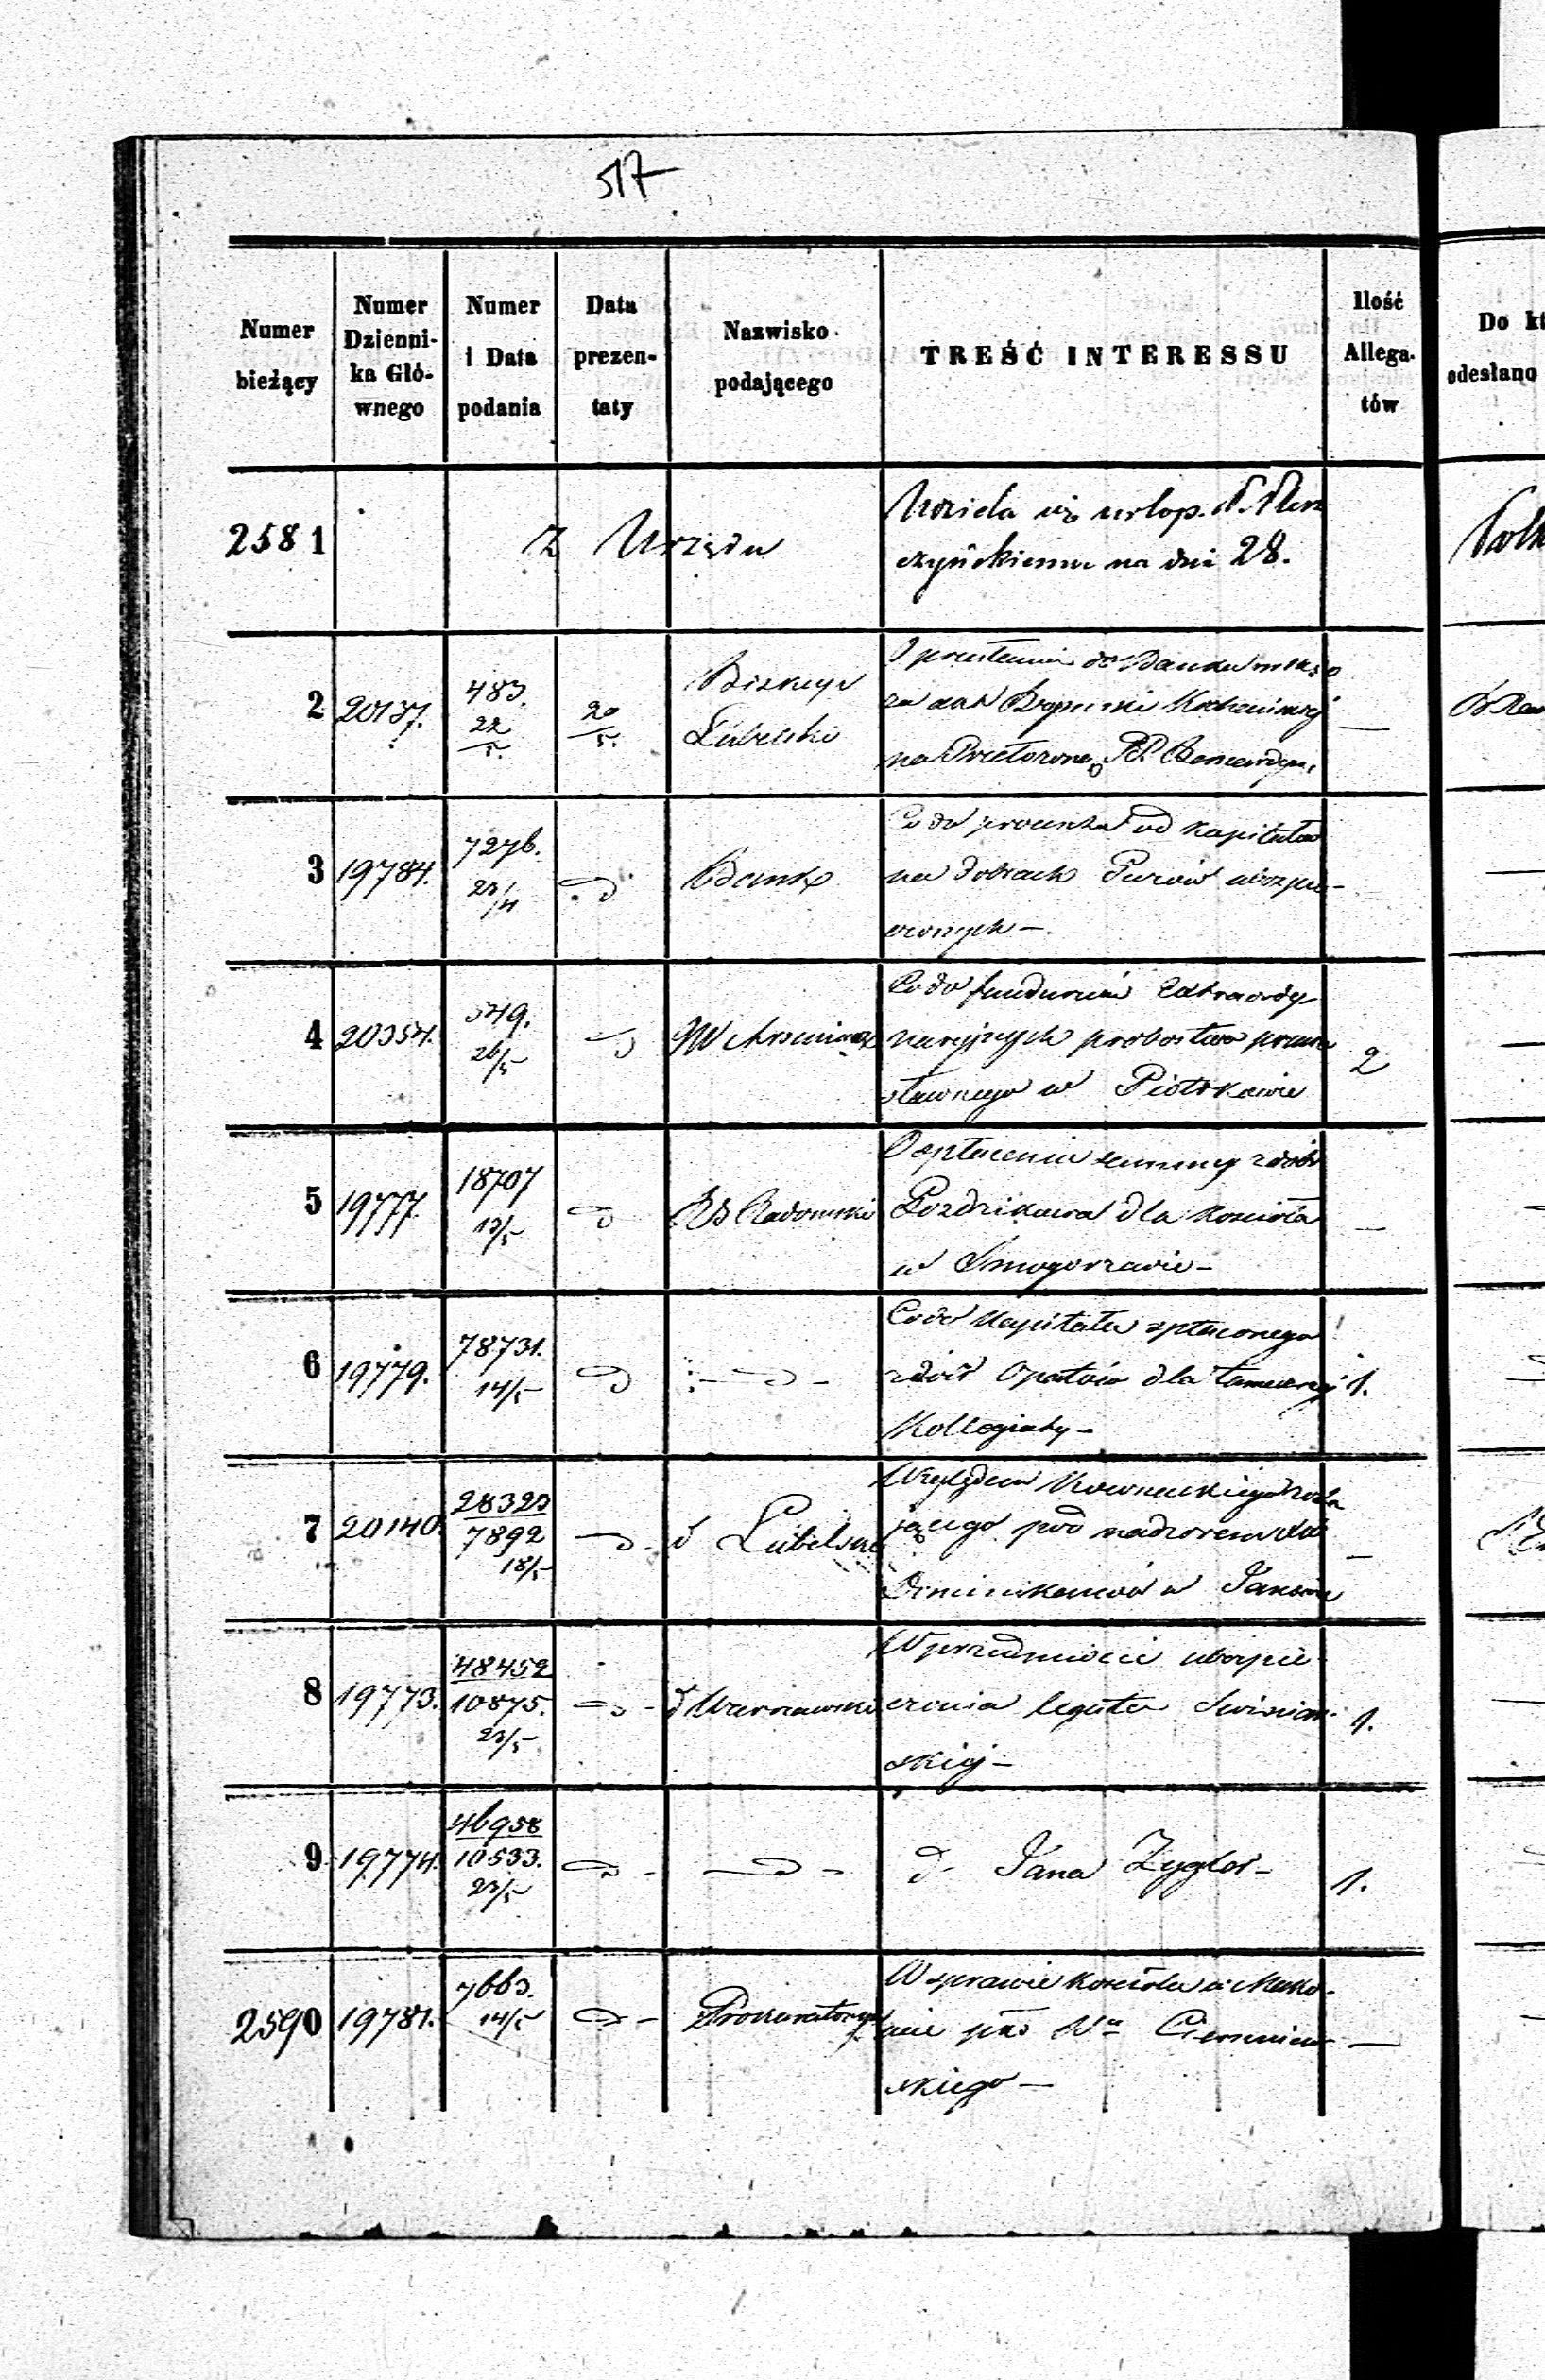 517
Numer bieżący
Numer Dzienni-ka Głó-wnego
Numer i Data podania
Data prezen-taty
Nazwisko podającego
TREŚĆ INTERESSU
Ilość Allega-tów
Do kt
odesłano
2581
Z Urzędu
Udziela się urlop.
czyńskiemu na dni 28.
2
20137.
483.
22/5.
20/5.
Biskup
Lubelski
O przesłanie do Banku
za
na PP. Bernardyn.
3
19784.
7276.
23/4
Bank
Co do procentu od kapitałów
na dobrach ubezpie-
czonych —
4
20354.
549.
26/5
JW Arseniusz
Co do funduszów Extraordy-
naryjnych probostwa prawo
sławnego w Piotrkowie
2
5
19777.
18707
13/5
RG Radomski
O spłacenie summy z dóbr
dla Kościoła
w Smogorzewie —
6
19779.
78731.
14/5
Co do Kapitału spłaconego
z dóbr Opatów dla tamecznej
Kollegiaty —
1.
7
20140.
28323
7892
18/5
d Lubelski
Względem
jącego pod nadzorem
Dominikanów w Janowie
8
19773.
48452
10875.
23/5
d Warszawski
W przedmiocie ubezpie-
czenia legatu
skiej —
1.
9
19774.
46958
10533.
23/5
d Jana Zygler —
1.
2590
19781.
7663.
14/5
Prokuratorya
W sprawie Kościoła w Mako-
wie
skiego —